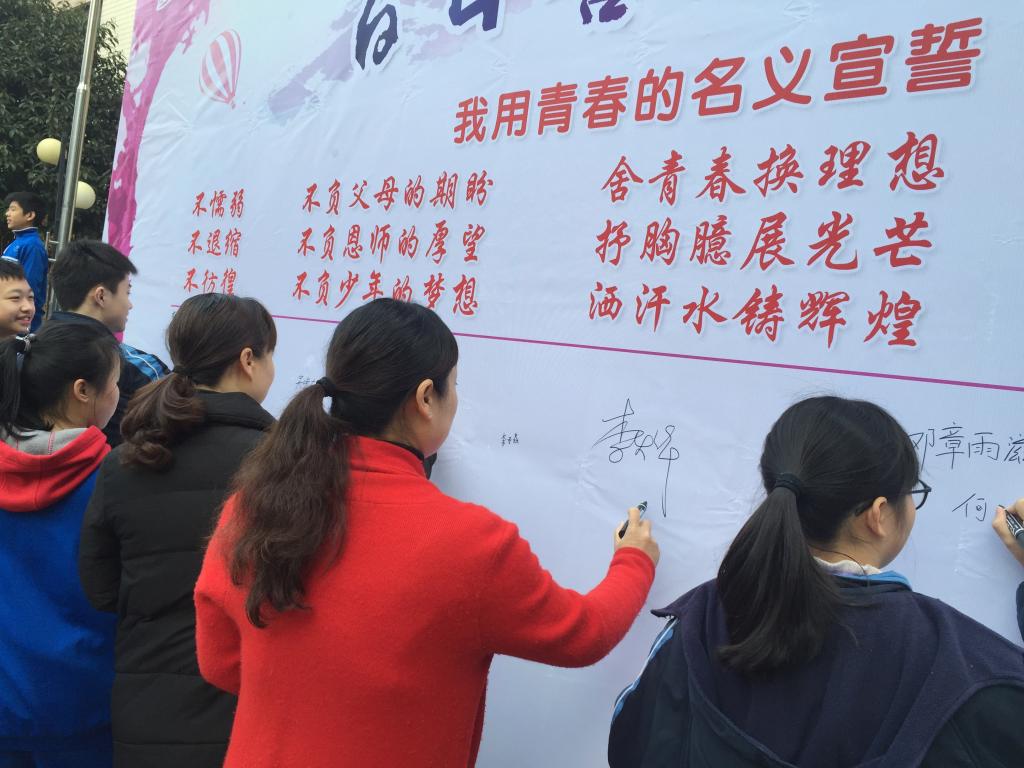 我用青春的名义宣誓
不懦弱
不退缩
不彷徨
不负父母的期盼
不负恩师的厚望
不负少年的梦想
舍青春换理想
抒胸臆展光芒
洒汗水铸辉煌
邓章雨滋
何